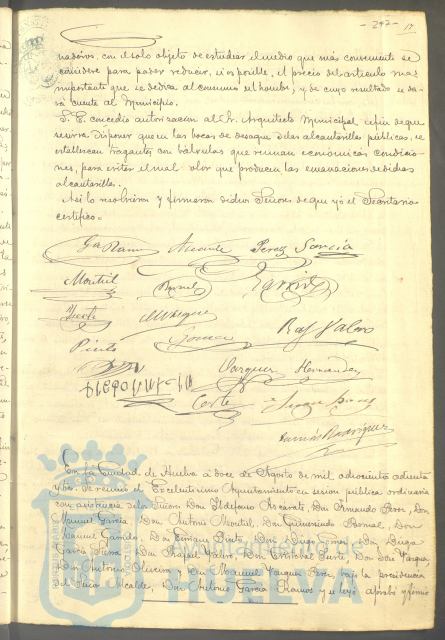 -242- 17
naderos, con el solo objeto de estudiar el medio que más conveniente se
considere para poder reducir, si es posible, el precio del artículo mas
importante que se dedica al consumo del hombre, y de cuyo resultado se da-
rá cuenta al Municipio.
S. E. concedió autorizacion al Sr. Arquitecto Municipal á fin de que
se sirva disponer que en las bocas de desagüe de las alcantarillas públicas, se
establezcan tragantes con bálvulas que reunan económicas condicio-
nes, para evitar el mal olor que producen las emanaciones de dichas
alcantarillas.
Así lo resolvieron y firmaron dichos Señores de que yo el Secretario
certifico=
Ga Ramos Azcarate Perez Garcia
Montiel Bernal
Vizcte Marquez
Pinto Gomez Raf Valero
Vazquez Hernandez
Corte
Rodriguez
En la Ciudad de Huelva á doce de Agosto de mil ochocientos ochenta
y tres. Se reunió el Excelentísimo Ayuntamiento en sesion pública ordinaria
con asistencia de los Señores Don Ildefonso Azcarate, Don Fernando Perez, Don
Manuel Garcia, Don Antonio Montiel, Don Gumersindo Bernal, Don
Manuel Garrido, Don Enrique Pinto, Don Diego Gomez, Don Diego
Garcia, Don Rafael Valero, Don Cristobal Don José Vazquez,
Don Antonio Oliveira y Don Manuel Vazquez Perez, bajo la presidencia
del Señor Alcalde, Don Antonio Garcia Ramos y se leyó, aprobó y firmó
HUELVA